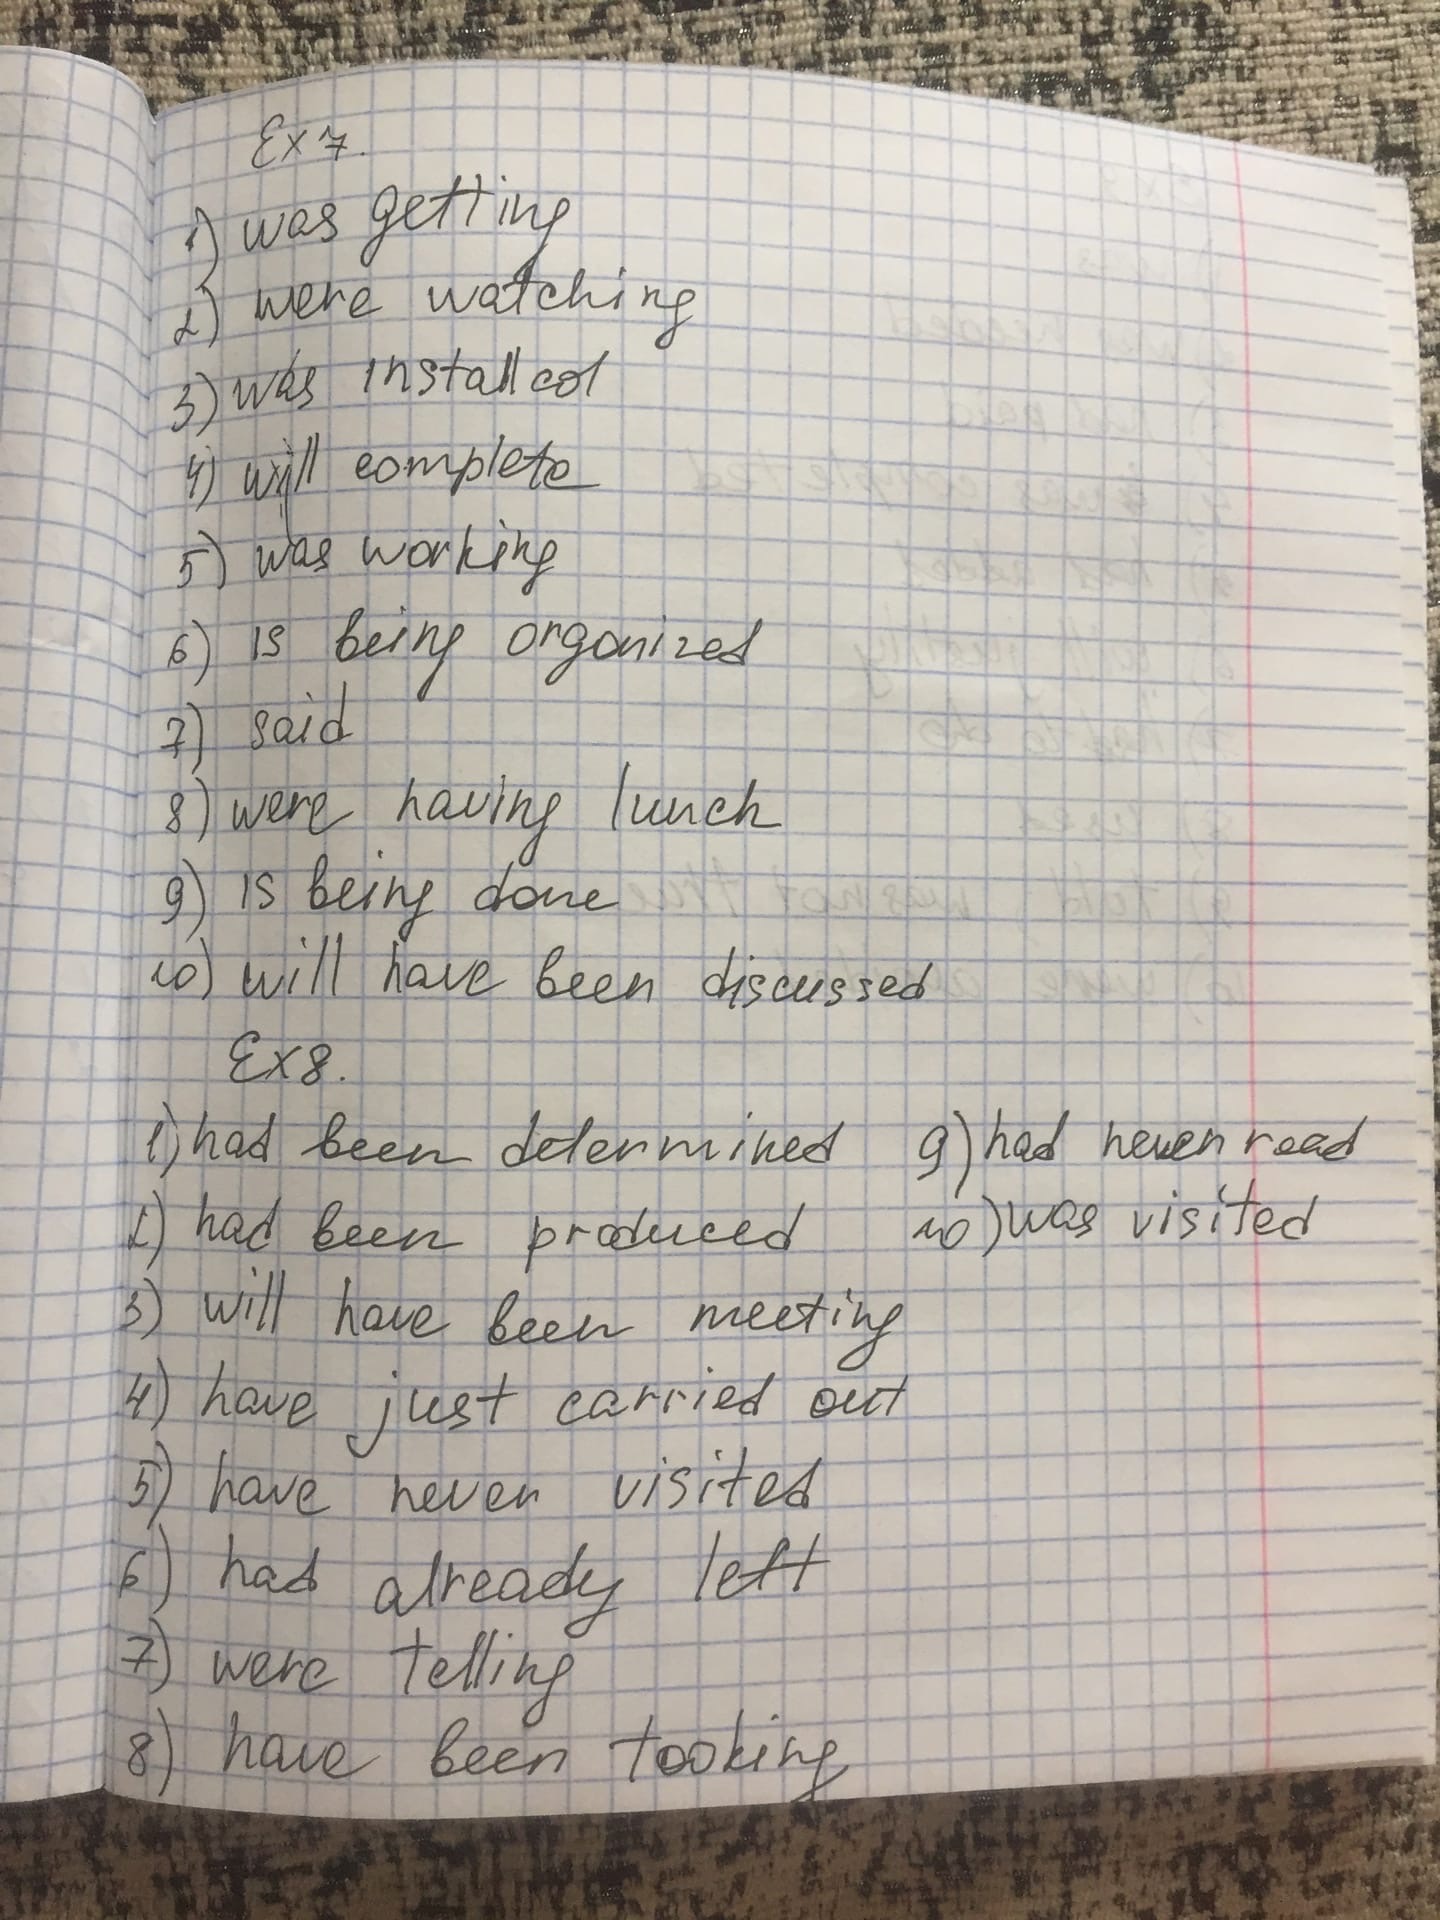 Ex 7.
1) was getting
2) were watching
3) was installed
4) will complete
5) was working
6) is being organized
7) said
8) were having lunch
9) is being done
10) will have been discussed
Ex 8.
1) had been determined
2) had been produced
3) will have been meeting
4) have just carried out
5) have never visited
6) had already left
7) were telling
8) have been tooking
9) had never read
10) was visited